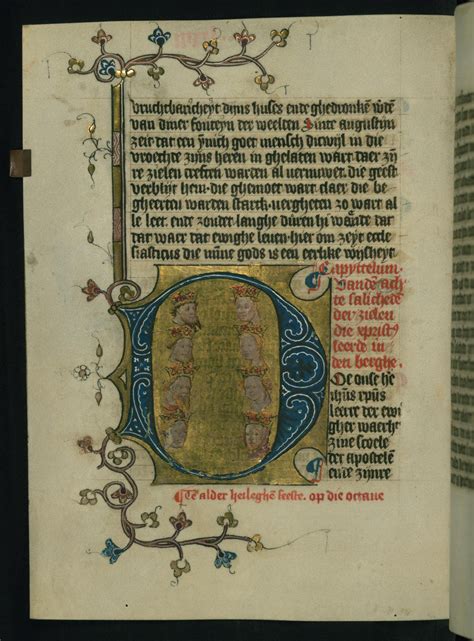 vruchtbaricheyt dijns huses ende ghedronkē wtē
van diner fonteyn der weelten Sinte augustijn
zeit dat een ynich goet mensch diewijl in die
vroechte zijns heren in ghelaten wart daer zy
re zielen creften warden al vernuwet. die geest
verblijt hem. die ghemoet wart claer die be
gheerten warden starck. vergheten zo wart al
le leet. ende zonder langhe
dat waer dat ewighe leuen. hier om zeyt eccle
siasticus die minne gods is een eerlike wijsheyt
Capyttelum
vanden ach
te salichede
der zielen
die xpristꝰ
leerde in
den berghe.
Doe onse he
re ihūs xpūs
leerer der ewi
gher waerhᵗ
zine scole
der apostelē
ende zijnre
¶ Tē alder heileghen feeste. op die octaue